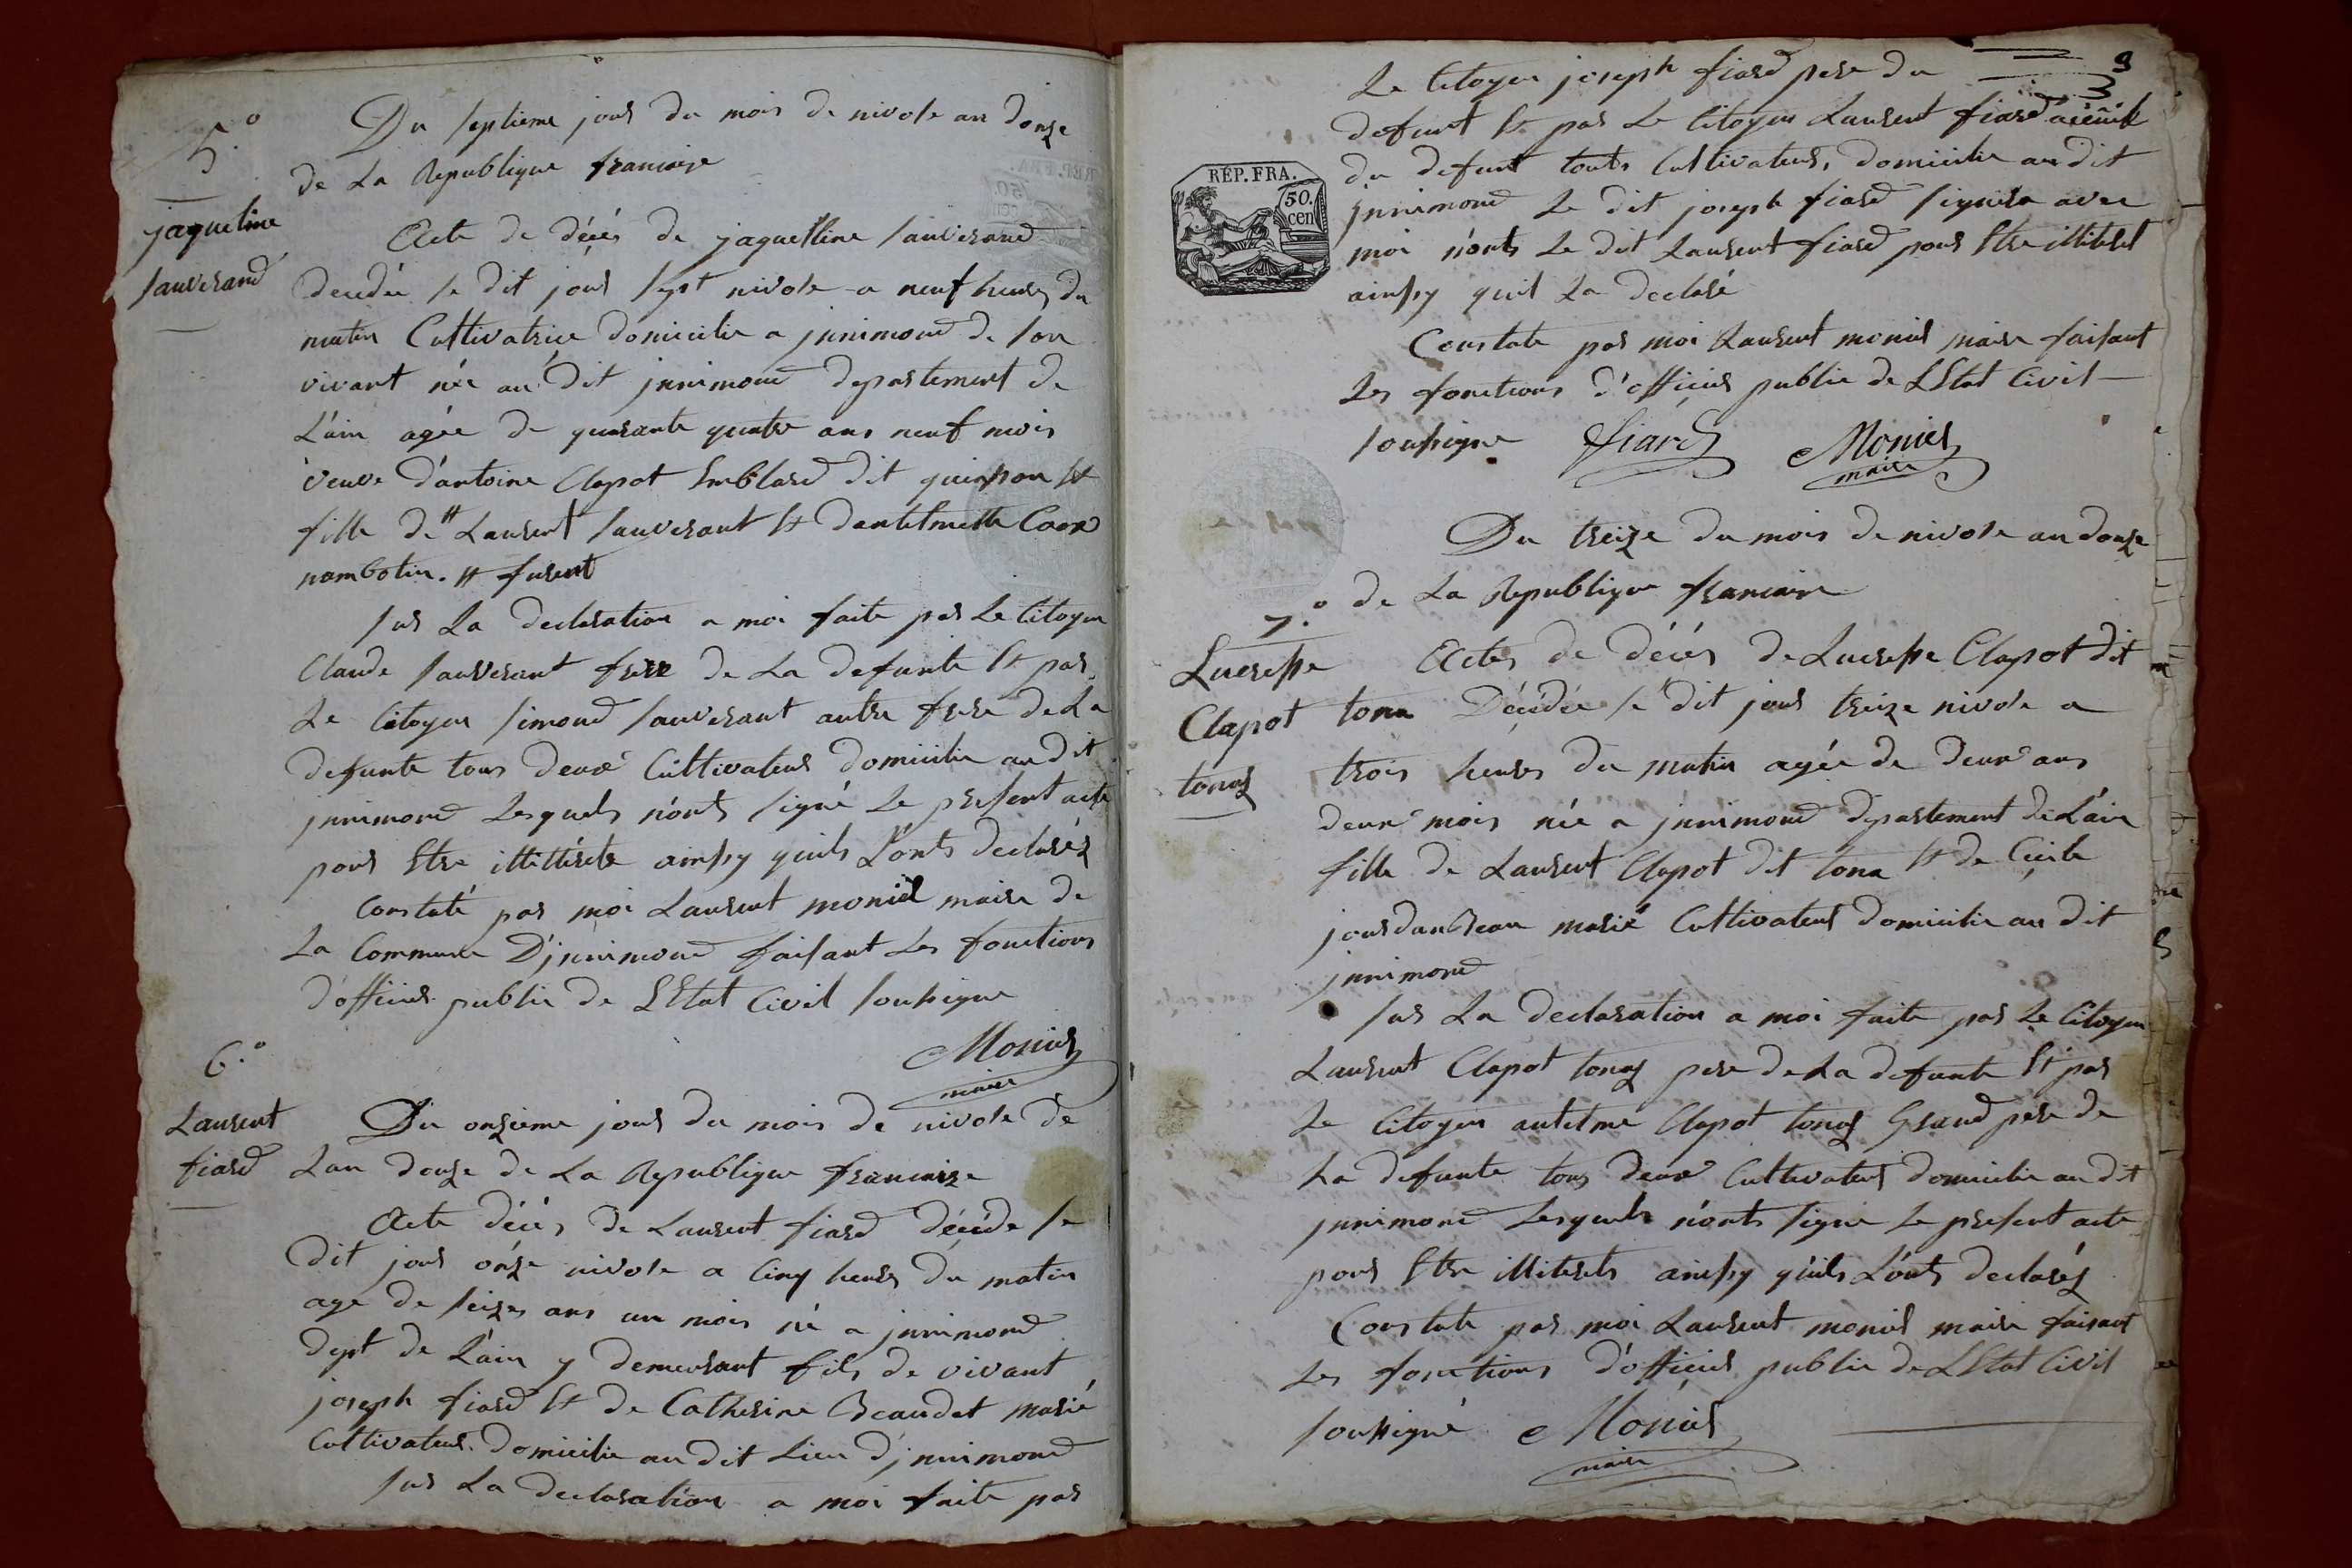 5.°
jaqueline
sauverand
Du septieme jour du mois de nivose an douze
de La Republique francaise
Acte de décés de jaquelline sauverand
decedée le dit jour sept nivose a neuf heures du
matin Cultivatrice domicilie a jnnimond de son
vivant née au dit jnnimond departement de
L'ain agée de quarante quatre ans neuf mois
veuve d'antoine Clapot Emblard dit guinson Et
fille de # Laurent sauverant Et dantelmette Caox
nambotin. # furent
sur La declaration a moi faite par Le Citoyen
Claude sauverant frere de La defunte Et par
Le Citoyen simond sauverant autre frere de La
defunte tous deux Cultivateur domicilie au dit
jnnimond Lesquels n'onts signé Le present acte
pour Etre illitterets ainsy quils L'onts declarés
Constaté par moi Laurent monier maire de
La Commune D'jnnimond faisant Les fonctions
d'officier public de LEtat Civil soussigne
Monier
maire
6.°
Laurent
fiard
Du onzieme jour du mois de nivose de
Lan douze de La Republique francaise
Acte décés de Laurent fiard décéde le
dit jour onze nivose a Cinq heures du matin
age de seizes ans un mois né a jnnimond
dept de L'ain y demeurant fils de vivant
joseph fiard Et de Catherine Beaudet marié
Cultivateur domicilie au dit Lieu d'jnnimond
sur La declaration a moi faite par
9
3
Le Citoyen joseph fiard pere du
defunt Et par Le Citoyen Laurent fiard
du defunt touts Cultivateurs domicilie au dit
jnnimond Le dit joseph fiard signera avec
moi n'onts Le dit Laurent fiard pour Etre illiteret
ainsy quil La declaré
Constate par moi Laurent monier maire faisant
Les fonctions d'officier public de LEtat Civil
soussigne fiard Monier
maire
RÉP. FRA.
50.
cen
Du treize du mois de nivose an douze
de La Republique francaise
7.°
Lucresse
Clapot
tonaz
Actes de décés de Lucresse Clapot dit
tona Décédée le dit jour treize nivose a
trois heures du matin agée de deux ans
deux mois née a jnnimond departement de L'ain
fille de Laurent Clapot dit tona Et de Cécile
jourdan Bean marié Cultivateur domicilie au dit
jnnimond
sur La declaration a moi faite par Le Citoyen
Laurent Clapot tonaz pere de La defunte Et par
Le Citoyen antelme Clapot tonaz Grand pere de
La defunte tous deux Cultivateur domicilie au dit
jnnimond Lesquels n'onts signe Le present acte
pour Etre illiterets ainsy quils L'onts declarés
Constate par moi Laurent monier maire faisant
Les fonctions d'officier public de LEtat Civil
soussigné Monier
maire